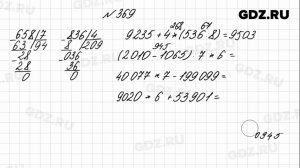 GDZ.RU
№ 369
658|7 836|4 9235 + 4 * (536 : 8) = 9503
268 67
63|94 8 |209
945
-28 036 (2010 - 1065) : 7 * 6 =
28 36
0 0 40 077 * 7 - 199 099 =
9020 * 6 + 53901 =
0345
GDZ.RU